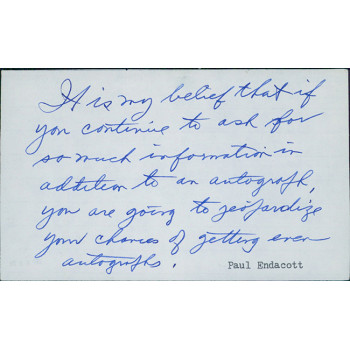 It is my belief that if
you continue to ask for
so much information in
addition to an autograph,
you are going to jeopardize
your chances of getting even
autographs.
Paul Endacott